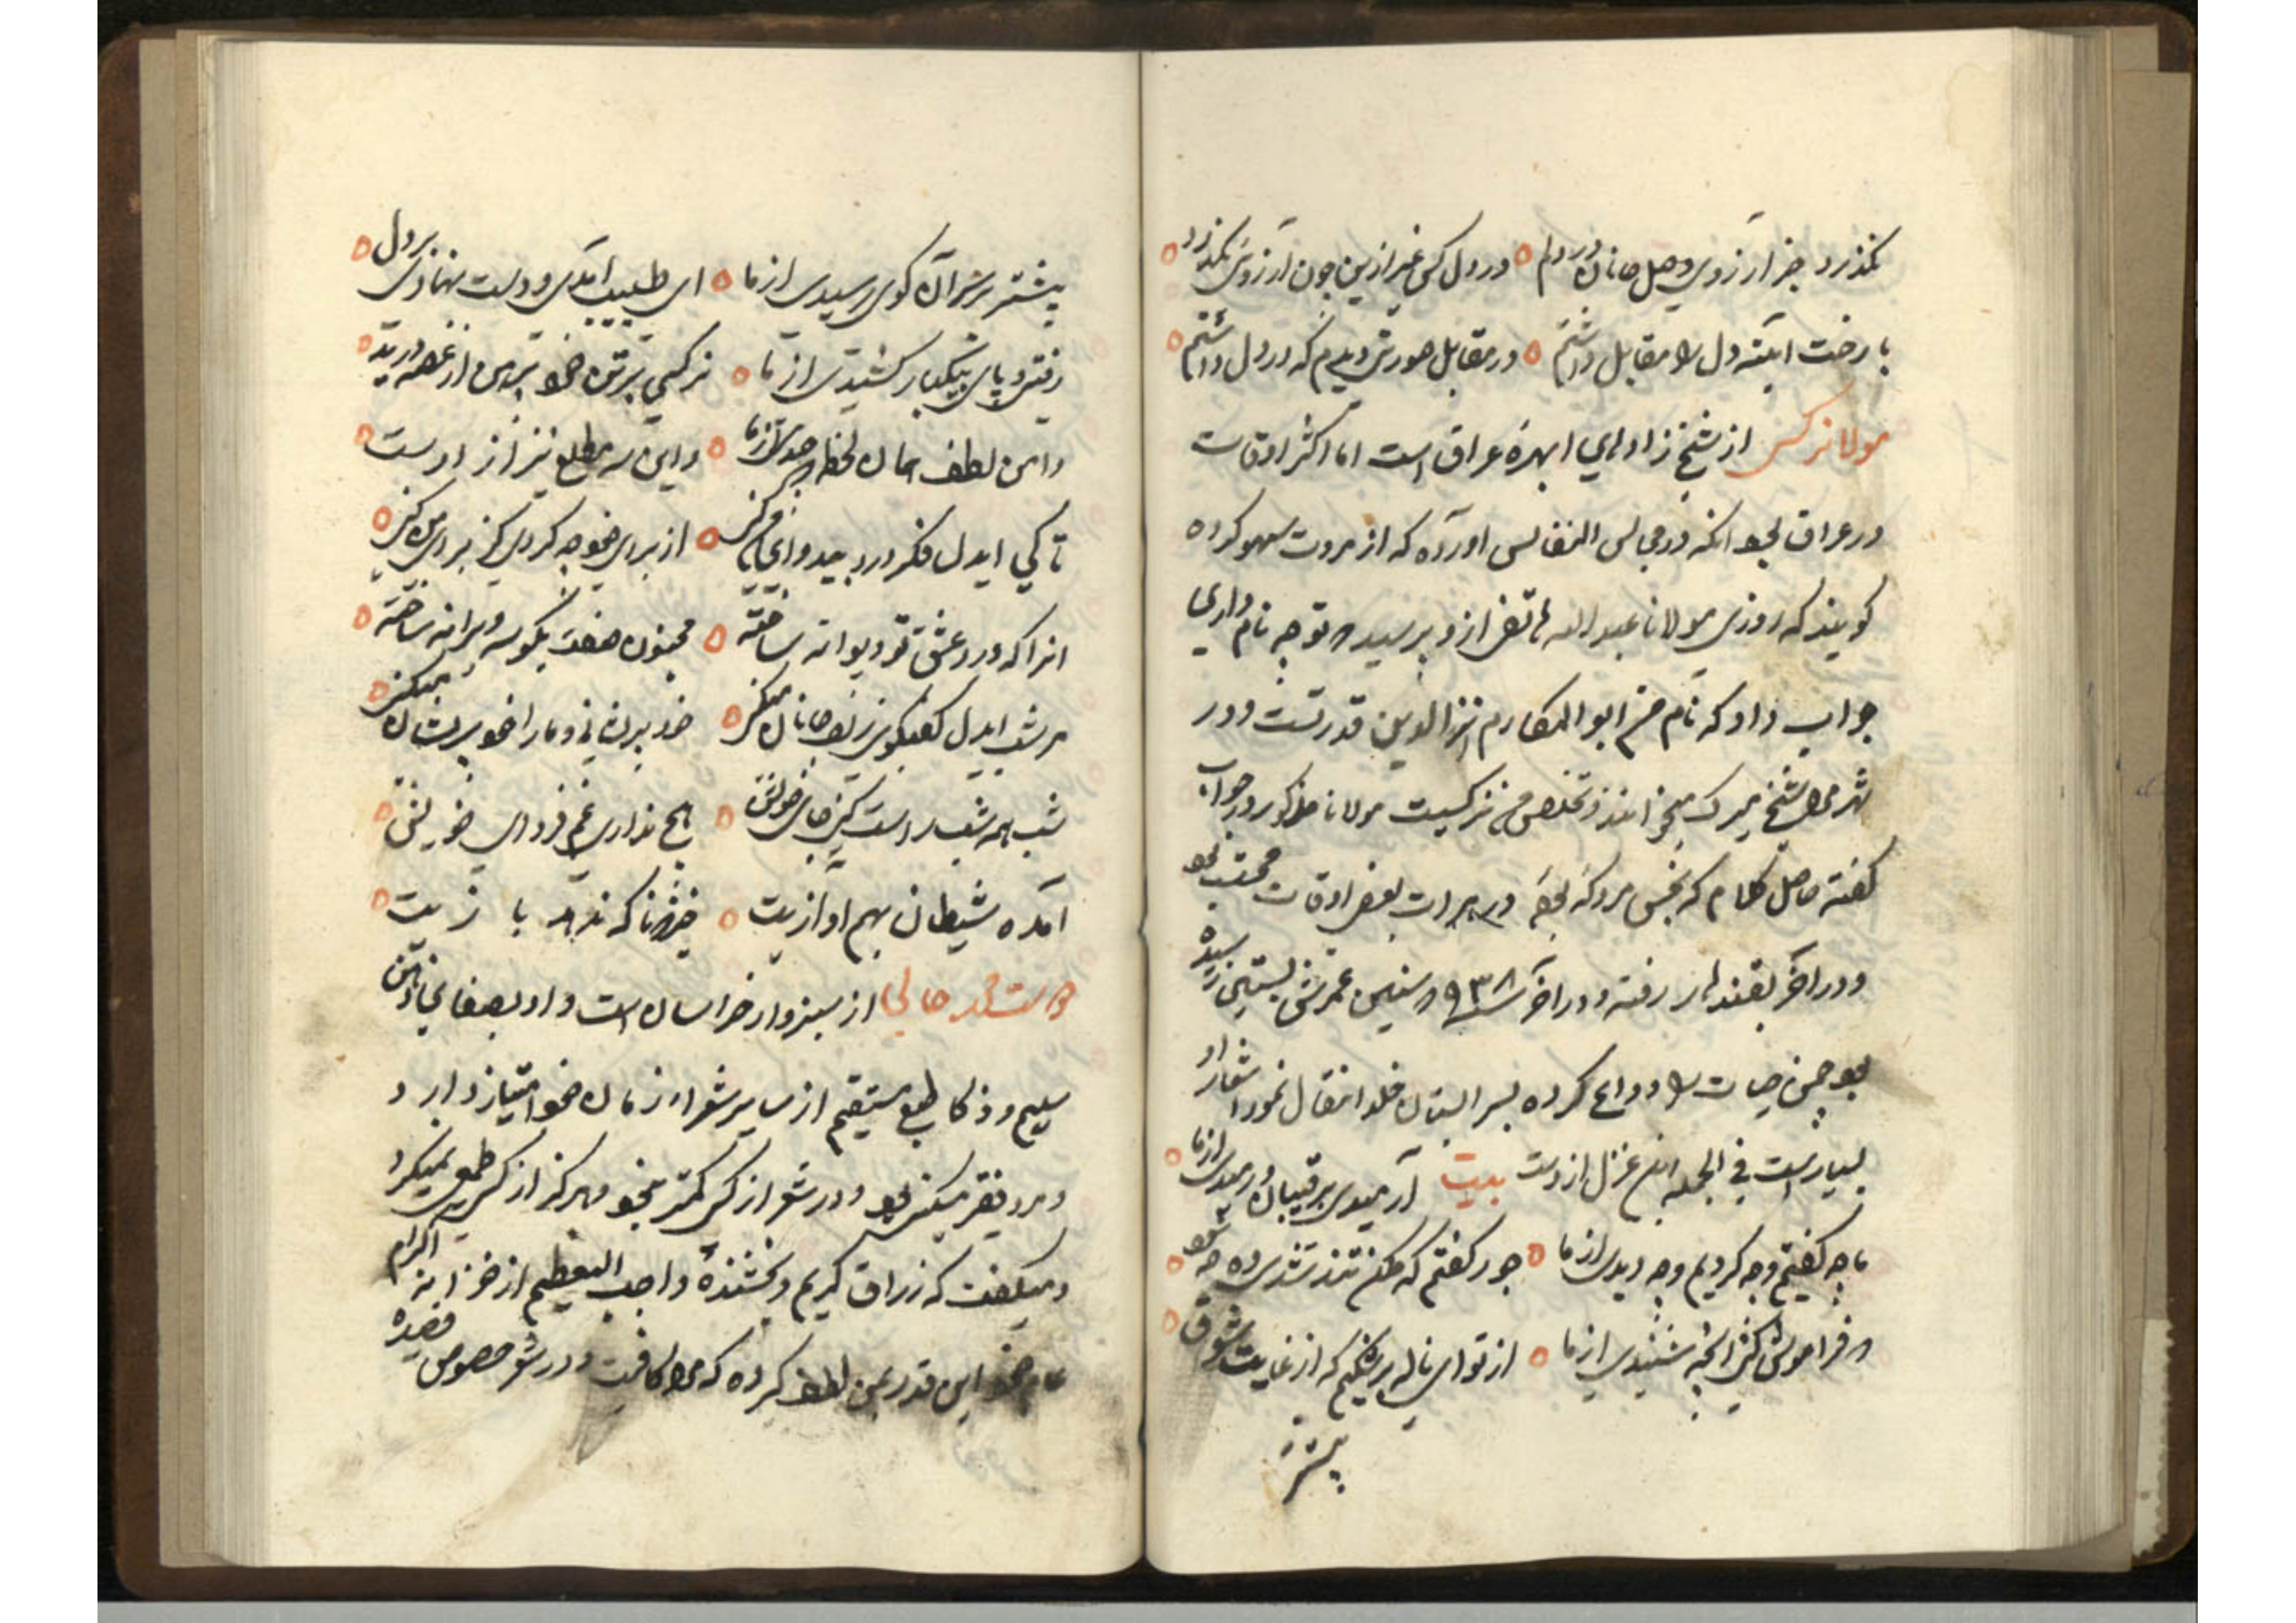 نکذرد جز آرزوی وصل جانان در دلم ه در دل کس غیر ازین چون آرزوئی نکذرد ه
با رخت آینه دل را مقابل داشتم ه در مقابل صورتی دیدم که در دل داشتم ه
مولانا نرکسی از شیخ زادهای ابهر عراق است اما اکثر اوقات
در عراق بود انکه در مجالس النفایس آورده که از مروست سهو کرده
کویند که روزی مولانا عبدالله هاتفی ازو پرسید که تو چه نام داری
جواب داد که نام من ابو المکارم الدین قدرتست و در
شهر مرا شیخ میرک میخوانند و تخلص من نرکسیست مولانا مذکور در جواب
کفته حاصل کلام که نجس مردکهٔ بوده در هرات بعضی اوقات محتسب بود
و در آخر بقندهار رفته و در آخر ۹۳۸ که سنین عمرش بستین رسیده
بود چمن حیات را وداع کرده بسرابستان خلد انتقال نمود اشعار او
بسیار است فی الجمله این غزل ازوست بیت آرمیدی برقیبان و رمیدی از ما ه
ما چه کفتیم و چه کردیم و چه دیدی از ما ه جور کفتم که مکن تند شدی وه چه شود ه
که فراموش کنی آنچه شنیدی از ما ه از تو ای ناله برشکیم که از غایت شوق ه
پیشتر
پیشتر بر سر آن کوی رسیدی از ما ه ای طبیب آمدی و دست نهادی بر دل ه
رفتی و پای بیکبار کشیدی از ما ه نرکسی برتن خود پیرهن از غصه درید ه
دامن لطف همان لحظه که چیدی از ما ه و این سه مطلع نیز از اوست
تا کی ایدل فکر درد بیدوای من کنی ه از برای خود چه کردی کز برای من کنی ه
انرا که درد عشق تو دیوانه ساخته ه مجنون صفت بکوشه ویرانه ساخته ه
هر شب ایدل کفتکوی زلف جانان میکنی ه خود پریشانی و ما را خود پریشان میکنی ه
شب همه شب راست کنی جای خویش ه هیچ نداری غم فردای خویش ه
آمده شیطان بهم آوازیت ه خیز نا که ندهد بازیت ه
دوست محمد حالی از سبزوار خراسان است و او بصفای ذهن
سلیم و ذکا طبع مستقیم از سایر شعراء زمان خود امتیاز دارد
و مرد فقیر مسکین بود و در شعر از کس کمتر نبود و هرکز از کس طمع نمیکرد
و میکفت که رزاق کریم و بخشندهٔ واجب التعظیم از خزانه اکرام
عام خود این قدر بمن لطف کرده که مرا کافیست و در شعر خصوص قصیده